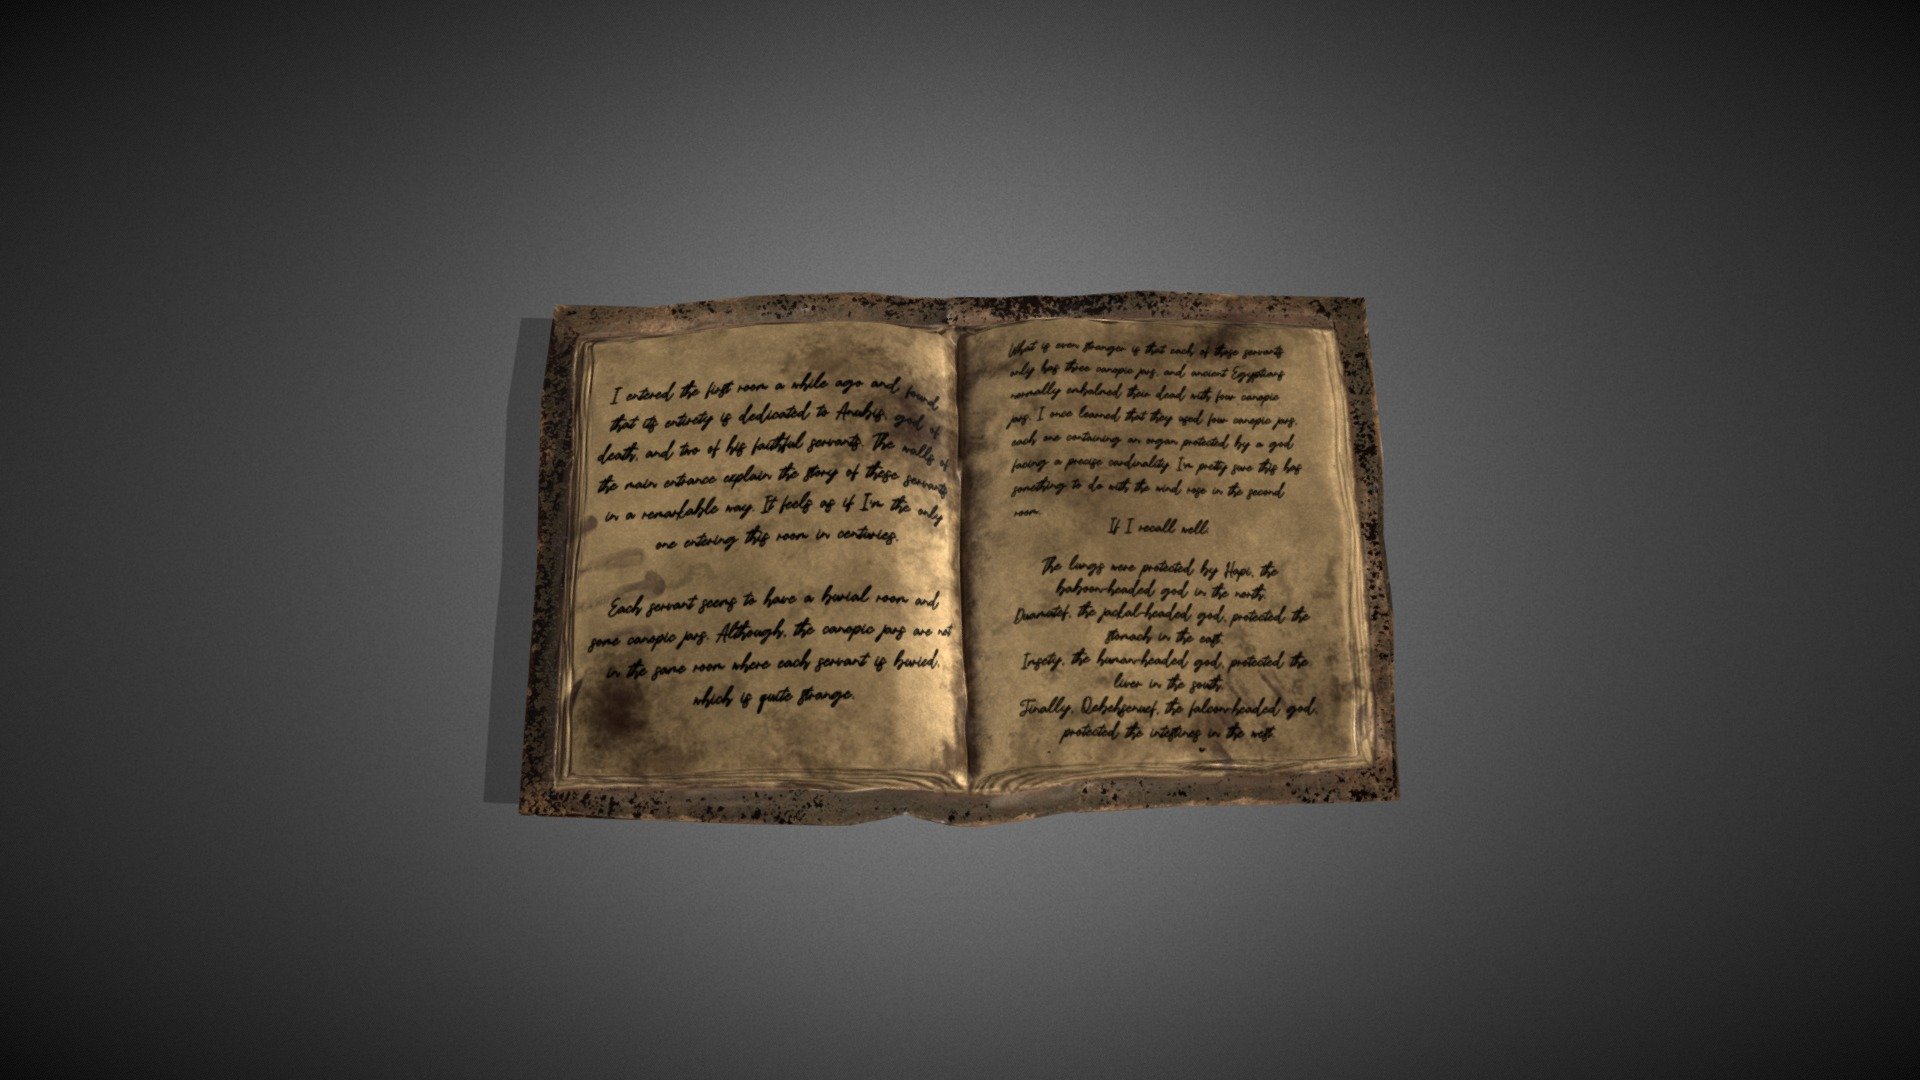 I entered the first room a while ago and found
that its entirety is dedicated to Anubis, god of
death, and two of his faithful servants. The walls of
the main entrance explain the story of these servants
in a remarkable way. It feels as if I'm the only
one entering this room in centuries.
Each servant seems to have a burial room and
some canopic jars. Although, the canopic jars are not
in the same room where each servant is buried,
which is quite strange.
What is even stranger is that each of these servants
only has three canopic jars, and ancient Egyptians
normally embalmed their dead with four canopic
jars. I once learned that they used four canopic jars,
each one containing an organ protected by a god
facing a precise cardinality. I'm pretty sure this has
something to do with the wind rose in the second
room.
If I recall well:
The lungs were protected by Hapi, the
baboon-headed god in the north.
Duamutef, the jackal-headed god, protected the
stomach in the east.
Imsety, the human-headed god, protected the
liver in the south.
Finally, Qebehsenuef, the falcon-headed god,
protected the intestines in the west.